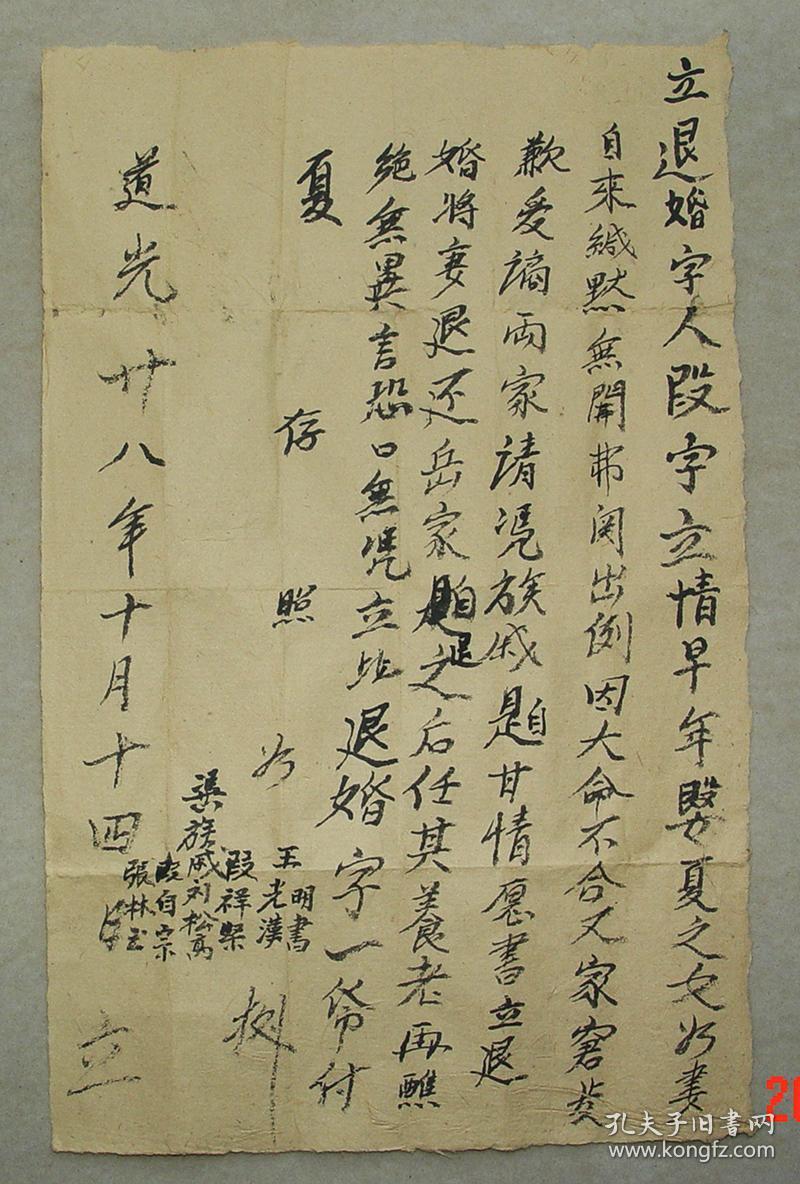 立退婚字人段字立情早年娶夏之女为妻
自来緘默無閒弗闵出例因大命不合又家窘
歉爱謫兩家请凭族戚 甘情愿書立退
婚将妻退还岳家 退之后任其養老再醮
绝無異言恐口無凭立此退婚字一纸付
夏
存
照
为
王老漢
明書
段祥
渠族戚刘松高
段自宗
張林玉
道光廿八年十月十四日
立
孔夫子旧书网
www.kongfz.com
20